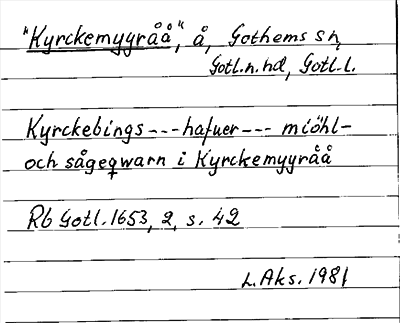 "Kyrckemyyråå", å, Gothems sn,
Gotl.n.hd, Gotl.l.
Kyrckebings---hafuer--- miöhl-
och sågeqwarn i Kyrckemyyråå
Rb Gotl. 1653, 2, s. 42
L. Aks. 1981